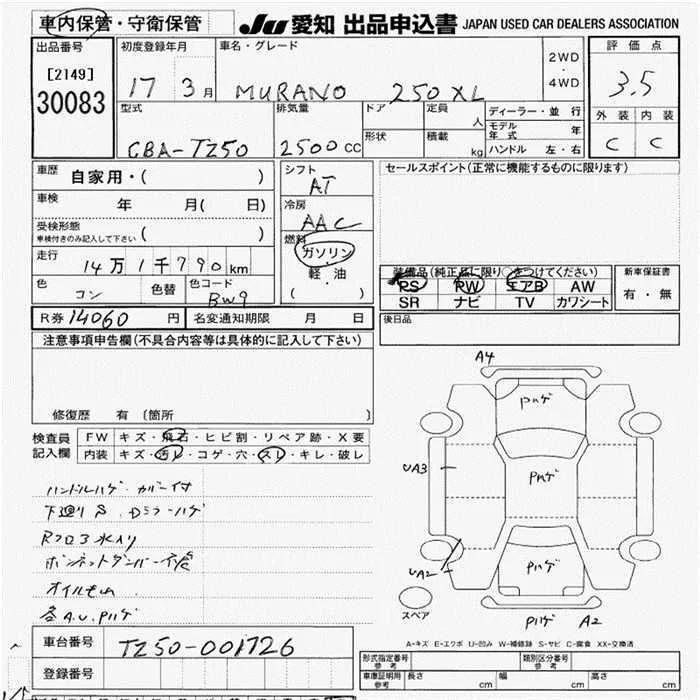 車内保管・守衛保管
JU 愛知 出品申込書 JAPAN USED CAR DEALERS ASSOCIATION
出品番号
[2149]
30083
初度登録年月
17 3月
車名・グレード
MURANO 250XL
2WD
・
4WD
評価点
3.5
外装 内装
C C
型式
CBA-TZ50
排気量
2500CC
ドア
定員
人
形状
積載
kg
ディーラー・並行
モデル年式 年
ハンドル 左・右
車歴
自家用・( )
車検
年 月( 日)
受検形態
車検付きのみ記入して下さい ( )
走行
14万1千790km
色
コン
色替
色コード
BW9
シフト
AT
冷房
AAC
燃料
ガソリン
軽・油
( )
セールスポイント(正常に機能するものに限ります)
装備品(純正品に限り○をつけてください)
PS PW エアB AW
SR ナビ TV カワシート
新車保証書
有・無
R券 14060 円
名変通知期限 月 日
後日品
注意事項申告欄(不具合内容等は具体的に記入して下さい)
修復歴 有 〔箇所 〕
検査員
記入欄
FW キズ・飛石・ヒビ割・リペア跡・X要
内装 キズ・汚レ・コゲ・穴・スレ・キレ・破レ
ハンドルハゲ カバー付
下廻りS
ボンネットダンパー
オイルもれ
A4
PハゲUA3
Pハゲ
UA2
Pハゲ
スペア
Pハゲ A2
A-キズ E-エクボ U-凹み W-補修跡 S-サビ C-腐食 XX-交換済
車台番号
TZ50-001726
登録番号
形式指定番号
参考
類別区分番号
参考
車庫証明用
参考
長さ cm
幅 cm
高さ cm